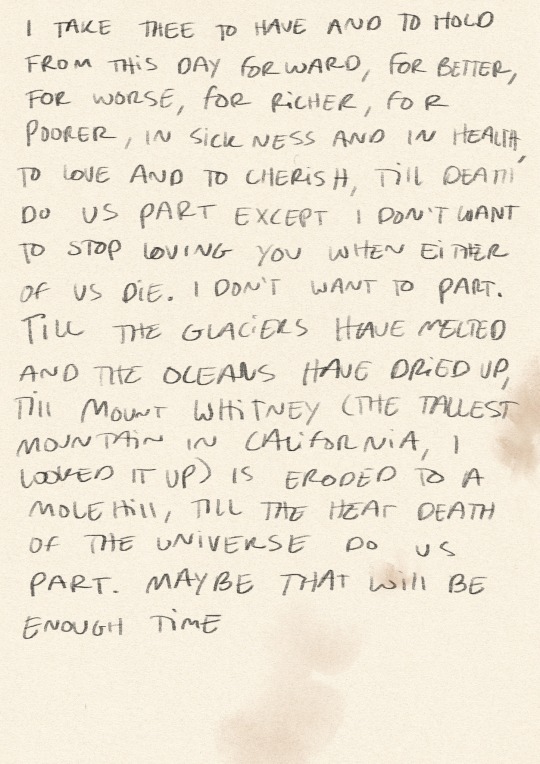 I TAKE THEE TO HAVE AND TO HOLD
FROM THIS DAY FORWARD, FOR BETTER,
FOR WORSE, FOR RICHER, FOR
POORER, IN SICKNESS AND IN HEALTH,
TO LOVE AND TO CHERISH, TILL DEATH
DO US PART EXCEPT I DON'T WANT
TO STOP LOVING YOU WHEN EITHER
OF US DIE. I DON'T WANT TO PART.
TILL THE GLACIERS HAVE MELTED
AND THE OCEANS HAVE DRIED UP,
TILL MOUNT WHITNEY (THE TALLEST
MOUNTAIN IN CALIFORNIA, I
LOOKED IT UP) IS ERODED TO A
MOLEHILL, TILL THE HEAT DEATH
OF THE UNIVERSE DO US
PART. MAYBE THAT WILL BE
ENOUGH TIME